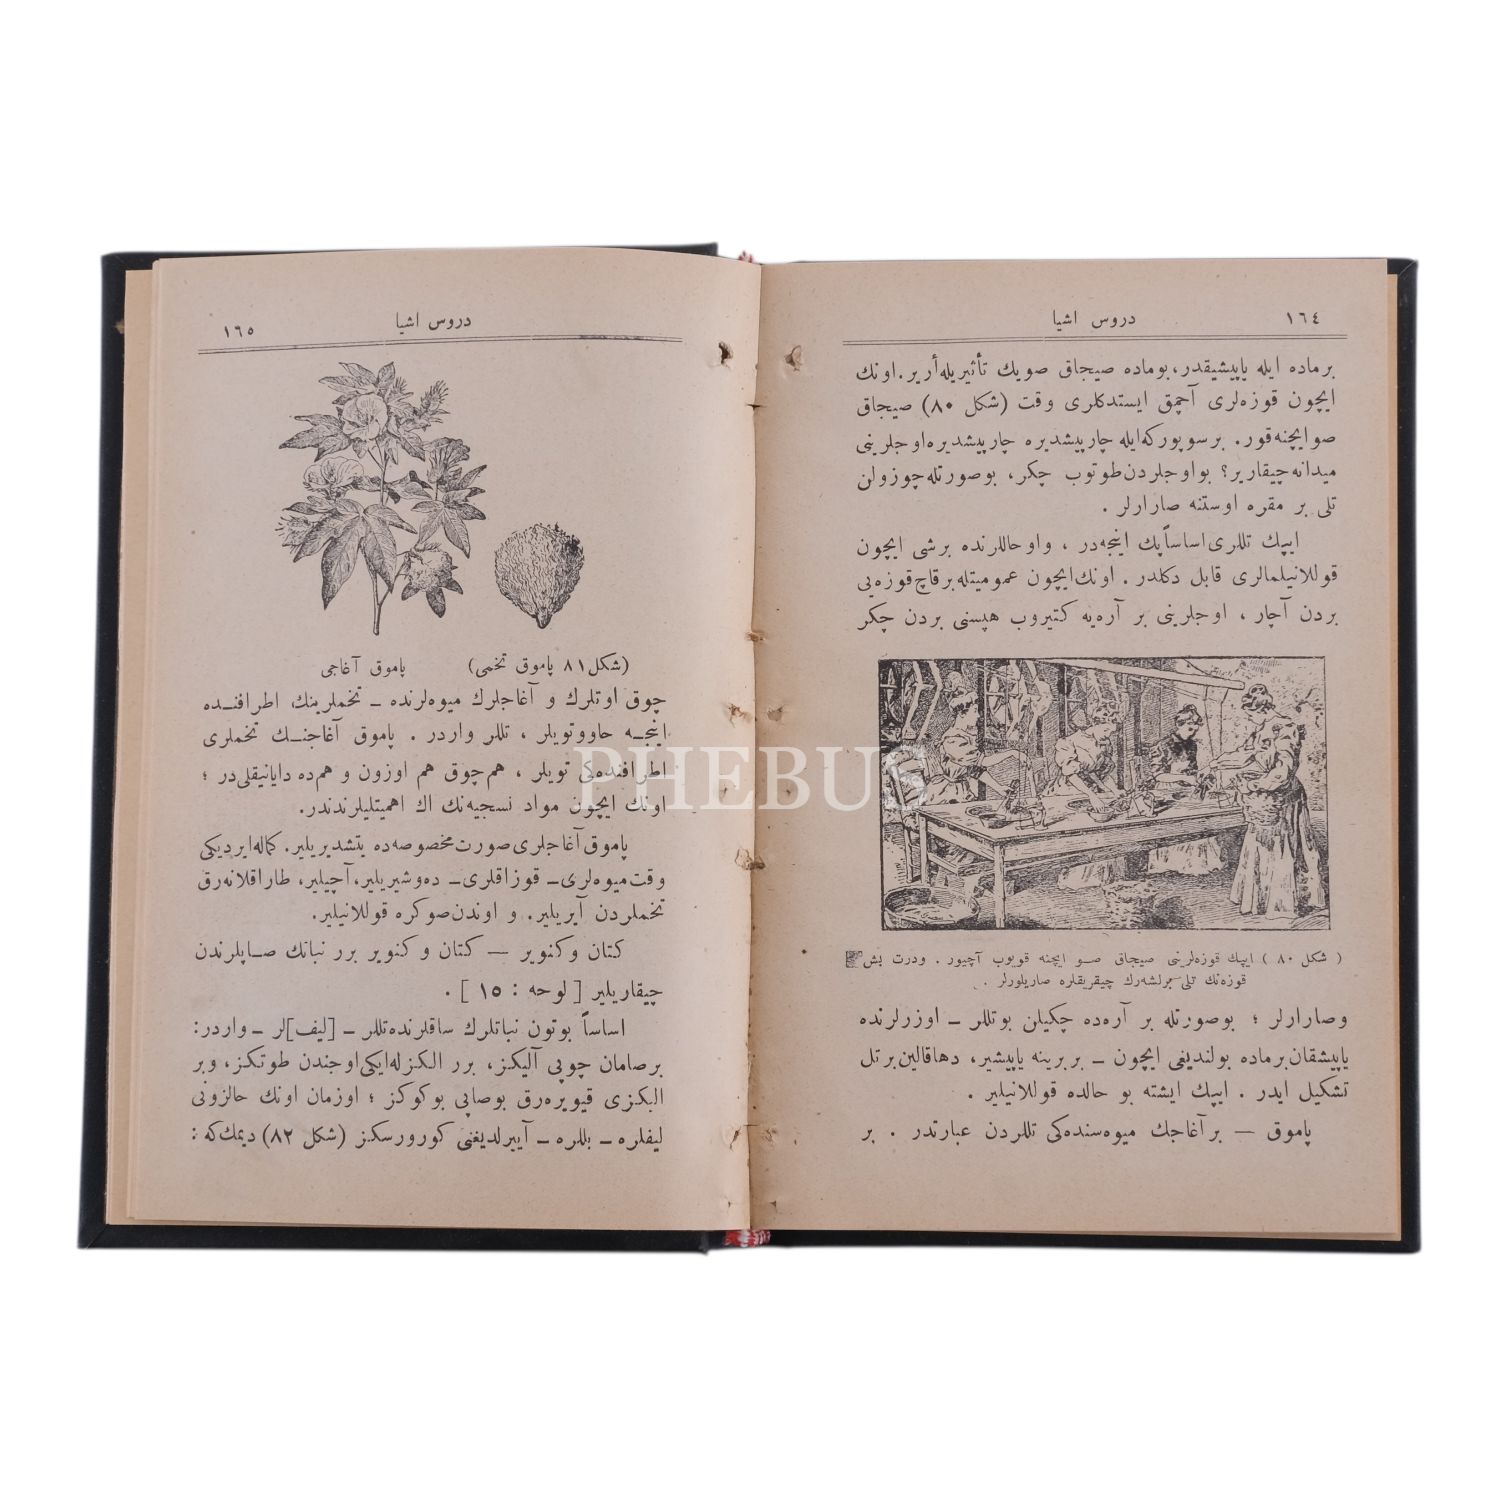 ١٦٤
دروس اشيا
بر ماده ايله ياپيشيقدر، بوماده صيجاق صويك تأثيريله أرير. اونك
ايچون قوزه‌لرى آچمق ايستدكلرى وقت (شكل ٨٠) صيجاق
صو ايچنه قور. بر سوپوركه ايله چارپيشديره چارپيشديره اوجلرينى
ميدانه چيقارير؟ بو اوجلردن طوتوب چكر، بوصورتله چوزولن
تلى بر مقره اوستنه صارارلر.
ايپك تللرى اساساً پك اينجه‌در ، و او حاللرنده بر شى ايچون
قوللانيلمالرى قابل دكلدر . اونك ايچون عموميتله بر قاچ قوزه‌يى
بردن آچار ، اوجلرينى بر آره‌يه كتيروب هپسنى بردن چكر
( شكل ٨٠ ) ايپك قوزه‌لرينى صيجاق صو ايچنه قويوب آچيور . ودرت بش
قوزه‌نك تلى برلشه‌رك چيقريقلره صاريلورلر .
وصارارلر ؛ بوصورتله بر آره‌ده چكيلن بوتللر ـ اوزرلرنده
ياپيشقان بر ماده بولنديغى ايچون ـ بربرينه ياپيشير، دها قالين بر تل
تشكيل ايدر . ايپك ايشته بو حالده قوللانيلير .
پاموق — بر آغاجك ميوه‌سنده‌كى تللردن عبارتدر . بر
دروس اشيا
١٦٥
(شكل ٨١ پاموق تخمى) پاموق آغاجى
چوق اوتلرك و آغاجلرك ميوه‌لرنده ـ تخملرينك اطرافنده
اينجه حاووتويلر ، تللر واردر . پاموق آغاجنك تخملرى
اطرافنده‌كى تويلر ، هم چوق هم اوزون و هم ده دايانيقلى‌در ؛
اونك ايچون مواد نسجيه‌نك اك اهميتليلرندندر.
پاموق آغاجلرى صورت مخصوصه‌ده يتشديريلير. كماله ايرديكى
وقت ميوه‌لرى ـ قوزاقلرى ـ ده‌وشيريلير، آچيلير، طاراقلانه‌رق
تخملردن آيريلير. و اوندن صوكره قوللانيلير.
كتان و كنوير — كتان و كنوير برر نباتك صاپلرندن
چيقاريلير [ لوحه : ١٥ ] .
اساساً بوتون نباتلرك ساقلرنده تللر ـ [ليف]لر ـ واردر:
بر صامان چوپى آليكز، برر الكزله ايكى اوجندن طوتكز، و بر
اليكزى قيويره‌رق بو صاپى بوكوكز ؛ اوزمان اونك حالزونى
ليفلره ـ تللره ـ آييرلديغنى كورورسكز (شكل ٨٢) ديمك كه :
PHEBUS